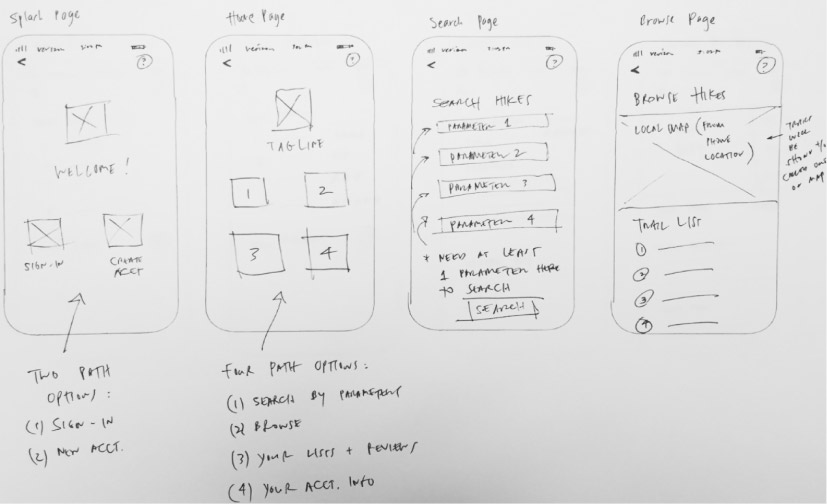 Splash Page
verizon
<
?
WELCOME!
SIGN-IN
CREATE
ACCT
TWO PATH
OPTIONS:
(1) SIGN-IN
(2) NEW ACCT.
Home Page
verizon
<
?
TAGLINE
1
2
3
4
FOUR PATH OPTIONS:
(1) SEARCH BY PARAMETERS
(2) BROWSE
(3) YOUR LISTS + REVIEWS
(4) YOUR ACCT. INFO
Search Page
verizon
<
?
SEARCH HIKES
PARAMETER 1
PARAMETER 2
PARAMETER 3
PARAMETER 4
* NEED AT LEAST
1 PARAMETER HERE
TO SEARCH
SEARCH
Browse Page
verizon
<
?
BROWSE HIKES
LOCAL MAP (FROM
PHONE
LOCATION)
TRAILS
WILL
BE
SHOWN
ON MAP
TRAIL LIST
1
2
3
4